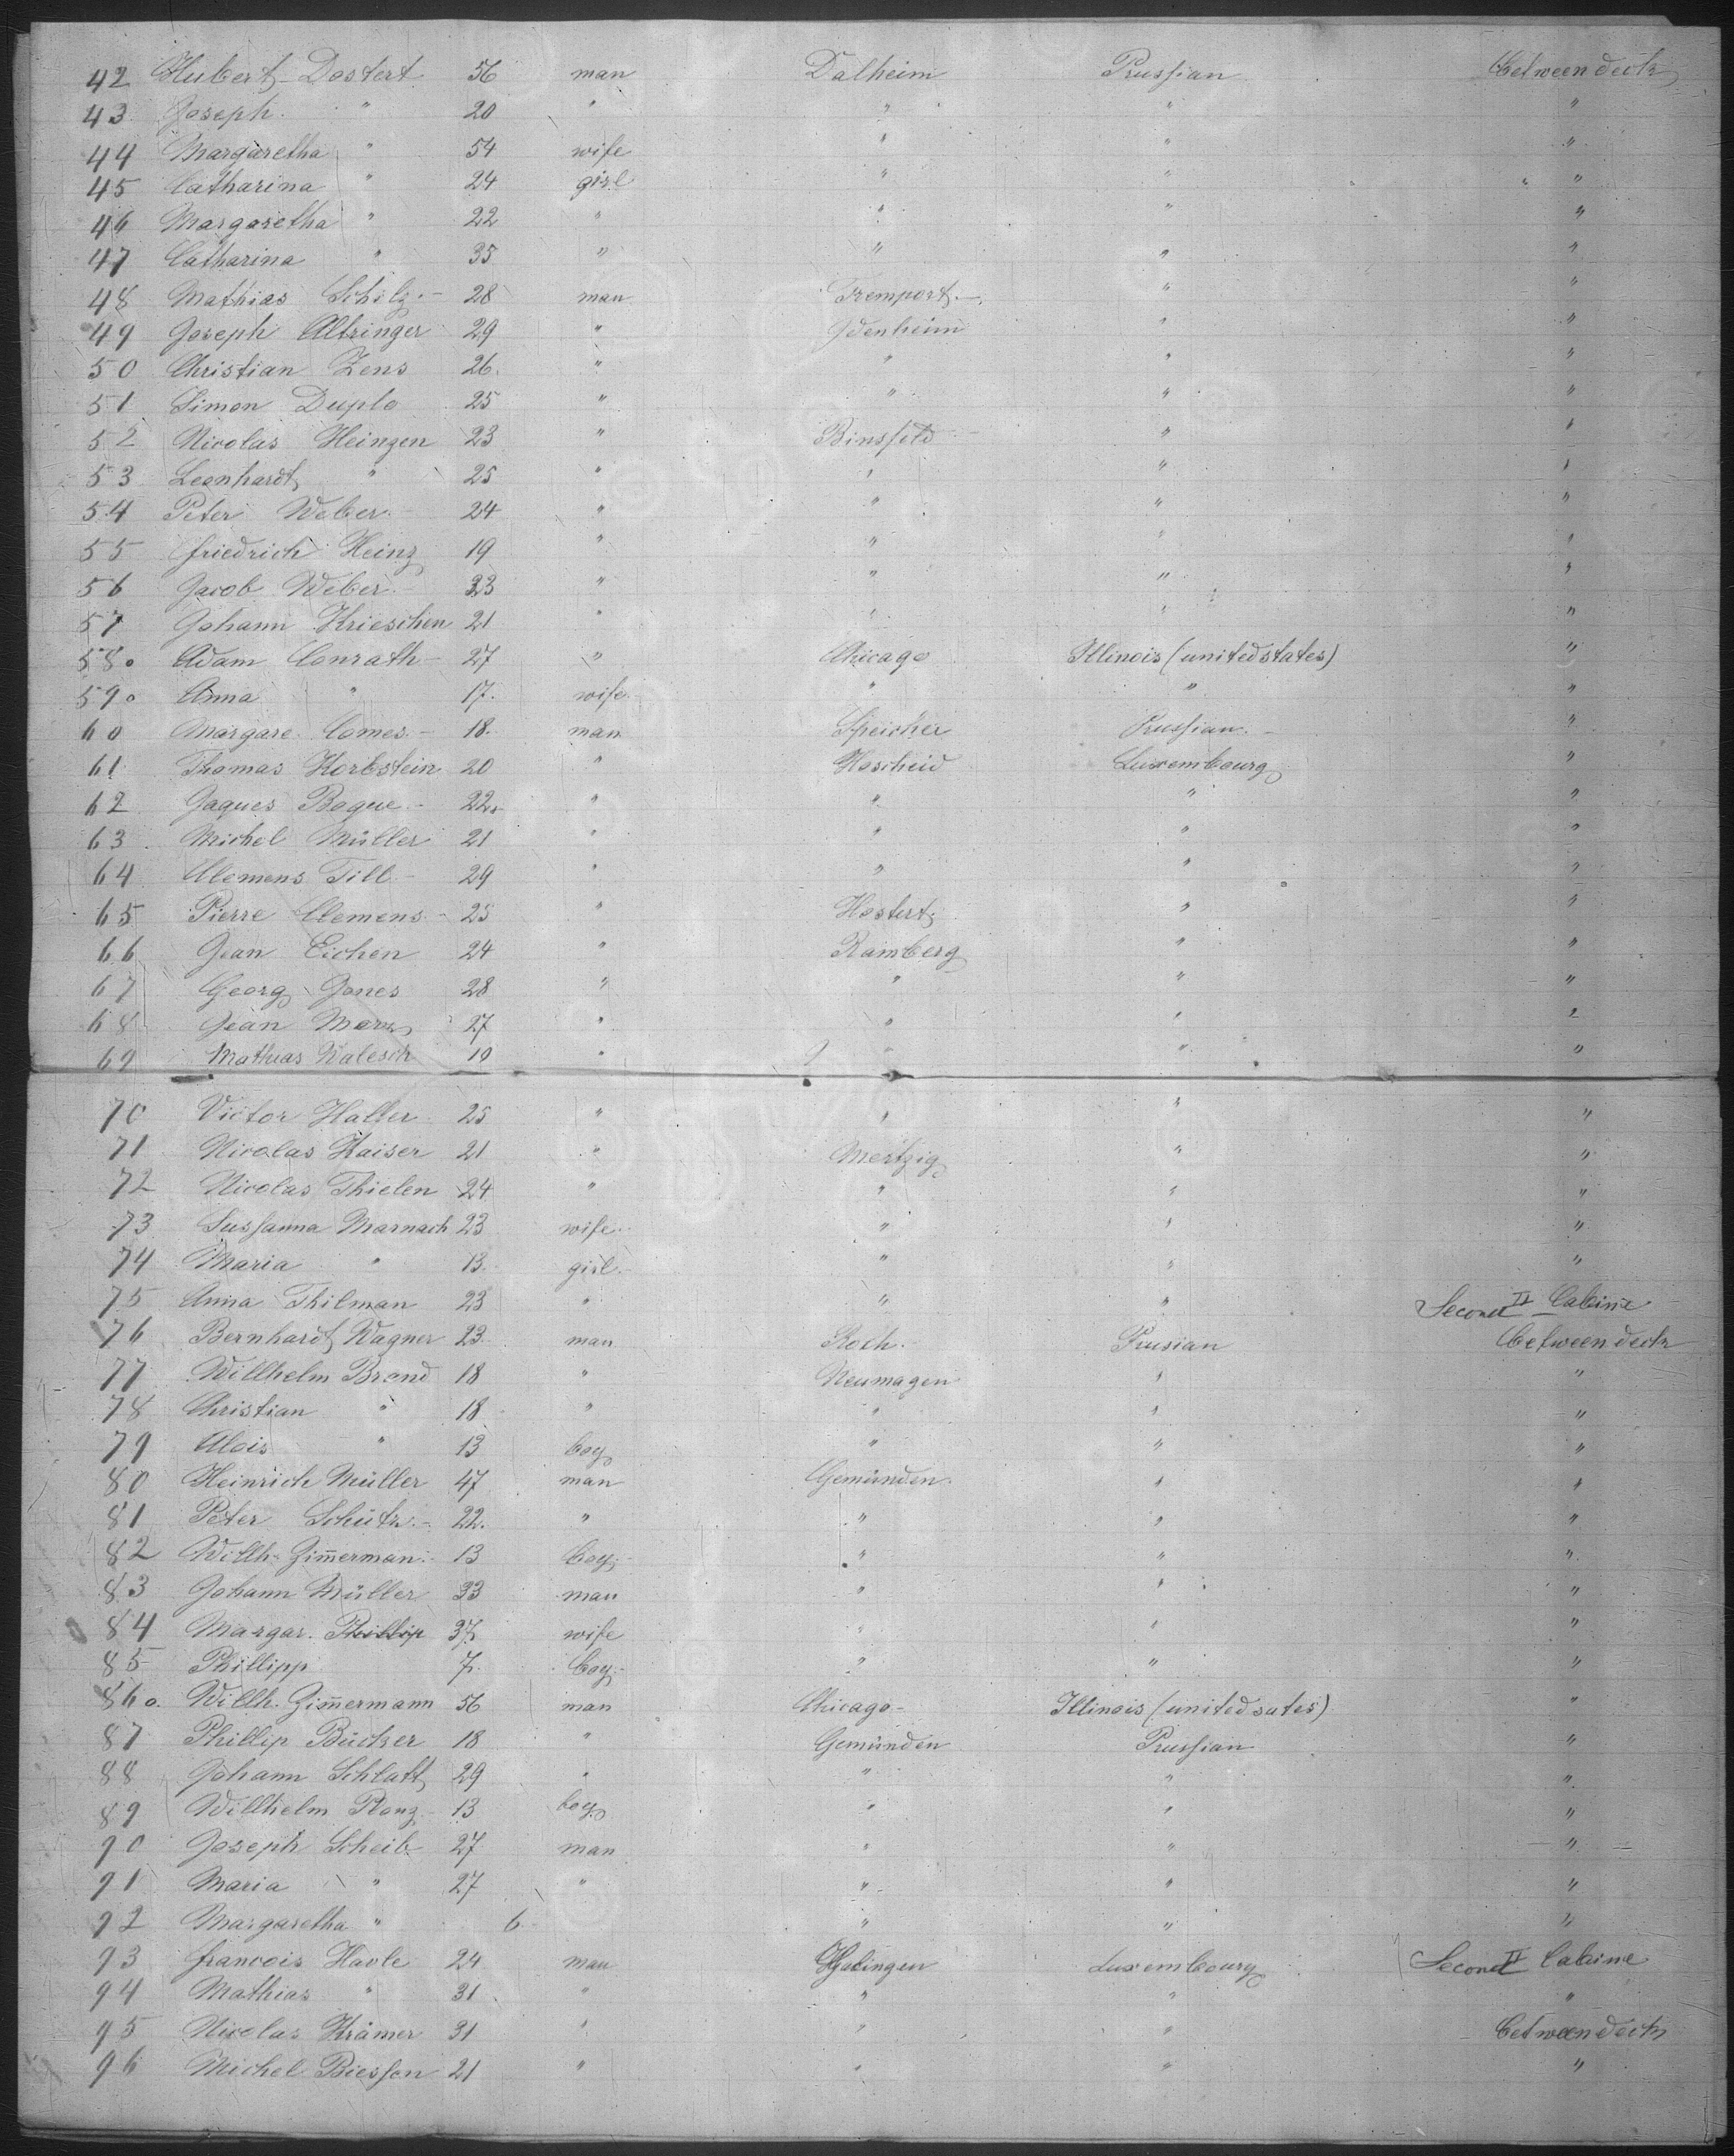 42 Hubert Dostert 56 man Dalheim Prussian between deck
43 Joseph " 20 " " " "
44 Margaretha " 54 wife " " "
45 Catharina " 24 girl " " "
46 Margaretha " 22 " " " "
47 Catharina " 35 " " " "
48 Mathias Schilz 28 man Fremport " "
49 Joseph Altringer 29 " Idenheim " "
50 Christian Zens 26 " " " "
51 Simon Duplo 25 " " " "
52 Nicolas Heingen 23 " Binsfeld " "
53 Leonhardt " 25 " " " "
54 Peter Weber 24 " " " "
55 friedrich Heinz 19 " " " "
56 Jacob Weber 23 " " " "
57 Johann Krieschen 21 " " " "
58 Adam Conrath 27 " Chicago Illinois (united states) "
59 Anna " 17 wife " " "
60 Margare Comes 18 man Speicher Prussian "
61 Thomas Korbstein 20 " Hoscheid Luxembourg "
62 Jaques Bogue 22 " " " "
63 Michel Müller 21 " " " "
64 Clemens Till 29 " " " "
65 Pierre Clemens 25 " Hostert " "
66 Jean Eichen 24 " Ramberg " "
67 Georg Jones 28 " " " "
68 Jean Marx 27 " " " "
69 Mathias Walesch 19 " " " "
70 Victor Haller 25 " " " "
71 Nicolas Kaiser 21 " Mertzig " "
72 Nicolas Thielen 24 " " " "
73 Sussanna Marnach 23 wife " " "
74 Maria " 13 girl " " "
75 Anna Thilman 23 " " " Second II Cabine
76 Bernhardt Wagner 23 man Roth Prusian between deck
77 Willhelm Brand 18 " Neumagen " "
78 Christian " 18 " " " "
79 Alois " 13 boy " " "
80 Heinrich Müller 47 man Gemünden " "
81 Peter Schütz 22 " " " "
82 Willh. Zim̄erman 13 boy " " "
83 Johann Müller 33 man " " "
84 Margar. Phillip 37 wife " " "
85 Phillipp 7 boy " " "
86 Willh. Zim̄ermann 56 man Chicago Illinois (united sates) "
87 Phillip Bücker 18 " Gemünden Prussian "
88 Johann Schlatt 29 " " " "
89 Willhelm Ronz 13 boy " " "
90 Joseph Scheib 27 man " " "
91 Maria " 27 " " " "
92 Margaretha " 6 " " "
93 francois Havle 24 man Luxembourg Second II Cabine
94 Mathias " 31 " " " "
95 Nicolas Krämer 31 " " " between deck
96 Michel Biessen 21 " " " "